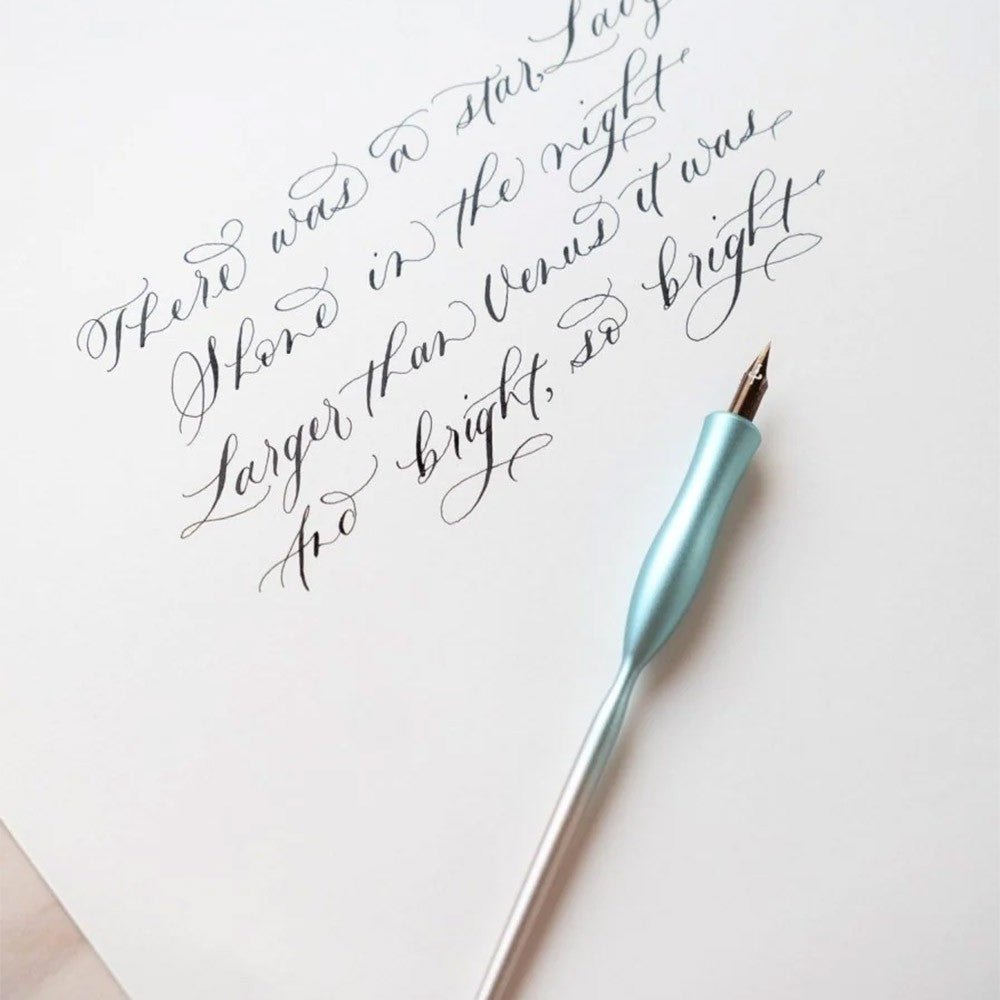 There was a star,
Shone in the night
Larger than Venus it was
And bright, so bright